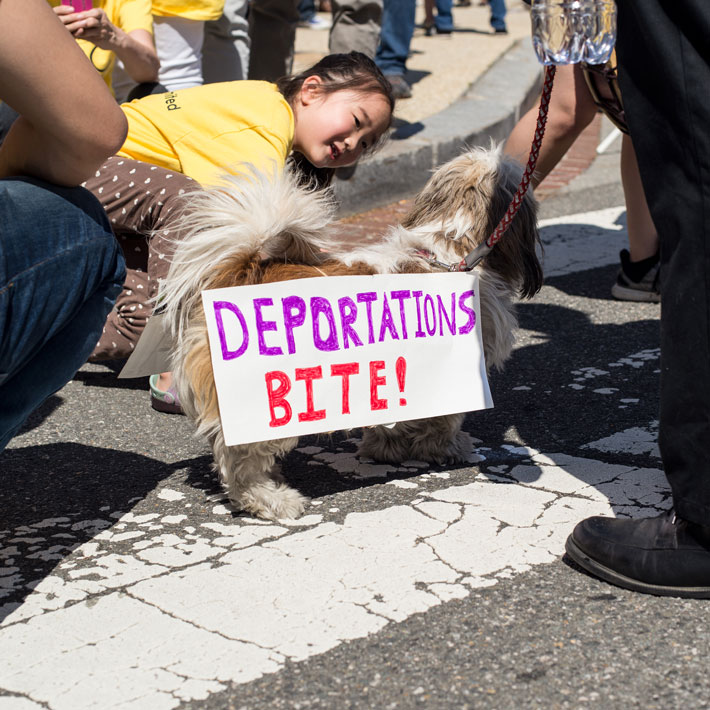 ified
DEPORTATIONS
BITE!